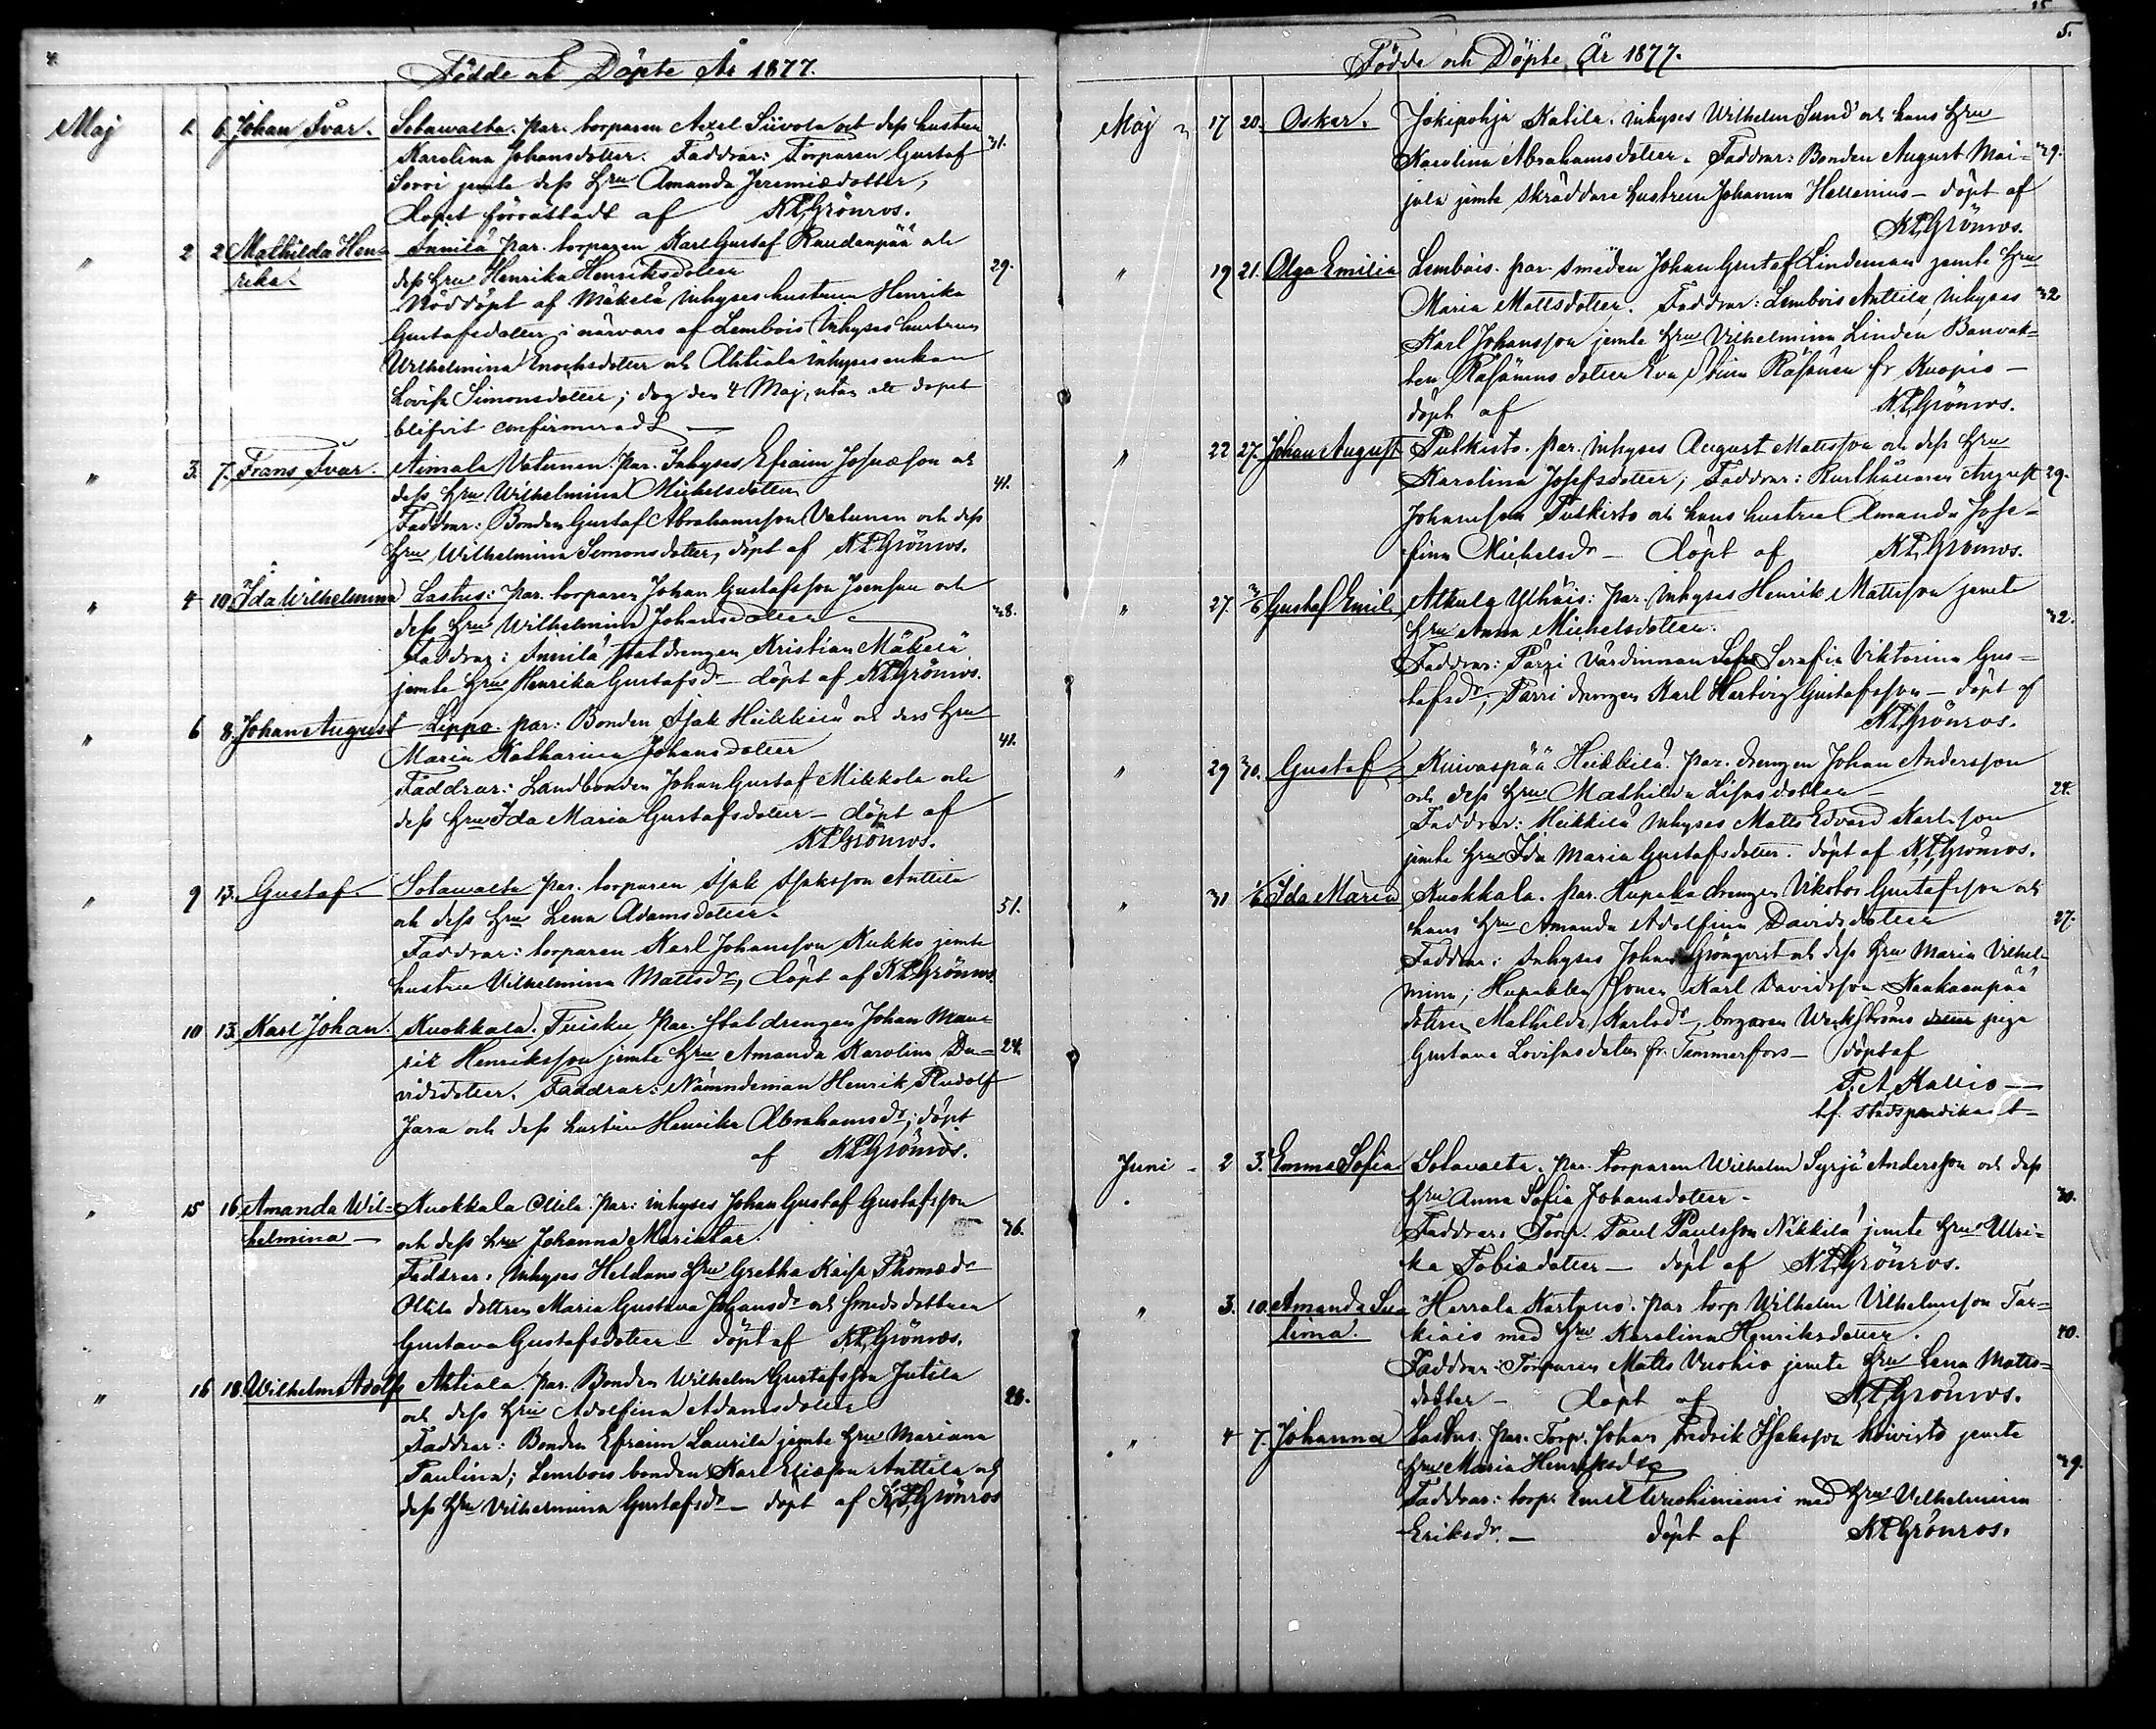 4.
Födde och Döpte År 1877.
Maj 1. 6. Johan Ivar. Sotawalta. par. torparen Axel Siivola och dess hustru
Karolina Johansdotter. Faddrar: Torparen Gustaf 31.
Sorri jemte dess Hru Amanda Jeremiædotter,
dopet förrättadt af KLGrönros.
" 2 2 Mathilda Hen- Innilä par. torparen Karl Gustaf Raudanpää och
rika. dess Hru Henrika Henriksdotter 29.
Nöddöpt af Mäkelä Inhyses hustrun Henrika
Gustafsdotter i närvaro af Lembois Inhyses hustrun
Wilhelmina Enochsdotter och Ahtiala inhyses enkan
Lovisa Simonsdotter; dog den 4 Maj, utan att dopet
blifvit confirmeradt —
" 3. 7. Frans Ivar. Aimala Vatunen. Par. Inhyses Efraim Josuæson och
dess Hru Wilhelmina Michelsdotter 41.
Faddrar: Bonden Gustaf Abrahamsson Vatunen och dess
Hru Wilhelmina Simonsdotter, döpt af KLGrönros.
" 4 10. Ida Wilhelmina Lastus: par. torparen Johan Gustafsson och
dess Hru Wilhelmina Johansdotter 38.
Faddrar: Innilä statdrengen Kristian Mäkelä
jemte Hru Henrika Gustafsdr — döpt af KLGrönros.
" 6 8. Johan August Lippo. par: Bonden Isak Heikkilä och dess Hru
Maria Katharina Johansdotter 41.
Faddrar: Landbonden Johan Gustaf Mikkola och
dess Hru Ida Maria Gustafsdotter — döpt af
KLGrönros.
" 9 13. Gustaf. Sotawalta par. torparen Isak Isaksson Anttila
och dess Hru Lena Adamsdotter. 51.
Faddrar: torparen Karl Johansson Kukko jemte
hustru Vilhelmina Mattsdr, döpt af KLGrönros.
10 13. Karl Johan. Kuokkala. Tuisku par. statdrengen Johan Mau-
ritz Henriksson jemte Hru Amanda Karolina Da- 24.
vidsdotter. Faddrar: Nämndeman Henrik Rudolf
Jara och dess hustru Henrika Abrahamsdr; döpt
af KLGrönros.
" 15 16. Amanda Wil- Kuokkala Ollila. Par: inhyses Johan Gustaf Gustafsson
helmina — och dess hru Johanna Mariatar. 36.
Faddrar: Inhyses Heldans Hru Gretha Kaisa Thomædr
Ollila dottren Maria Gustava Johansdr och Smeds dottren
Gustava Gustafsdotter — döpt af KLGrönros.
" 16 18. Wilhelm Adolf Ahtiala. par. Bonden Wilhelm Gustafsson Jutila
och dess Hru Adolfina Adamsdotter 28.
Faddrar: Bonden Efraim Laurila jemte Hru Mariana
Paulina; Lembois bonden Karl Eliæson Anttila och
dess Hru Vilhelmina Gustafsdr — döpt af KLGrönros
15
5.
Födde och Döpte År 1877.
Maj 17 20. Oskar. Jokipohja Katila. inhyses Wilhelm Sund och hans Hru
Karolina Abrahamsdotter. Faddrar: Bonden August Mai- 39.
jala jemte skräddare hustrun Johanna Hellenius — döpt af
KLGrönros.
" 19 21. Olga Emilia Lembois. par. smeden Johan Gustaf Lindeman jemte Hru
Maria Mattsdotter. Faddrar: Lembois Anttila Inhyses 32
Karl Johansson jemte Hru Vilhelmina Lindén Banvak-
ten Räsänens dotter Eva Räsänen fr. Kuopio —
döpt af KLGrönros.
" 22 27. Johan August Putkisto. par. inhyses August Mattsson och dess Hru
Karolina Josefsdotter; Faddrar: Kusthållaren August 29.
Johansson Putkisto och hans hustru Amanda Jose-
fina Michelsdr — döpt af KLGrönros.
" 27 3/6 Gustaf Emil Alkula Ylhäis: par. Inhyses Henrik Mattsson jemte
Hru Anna Michelsdotter. 32.
Faddrar: Pärri Värdinnan Serafia Viktorina Gus-
tafsdr, Pärri drengen Karl Hartvig Gustafsson — döpt af
KLGrönros.
" 29 30. Gustaf Kuivaspää Heikkilä. par. drengen Johan Andersson
och dess Hru Mathilda Lisasdotter — 24.
Faddrar: Heikkilä Inhyses Matts Edvard Karlsson
jemte Hru Ida Maria Gustafsdotter. döpt af KLGrönros.
" 31 1/6 Ida Maria Kuokkala. par. Hupaka drengen Viktor Gustafsson och
hans Hru Amanda Adolfina Davidsdotter 27.
Faddrar: Inhyses Johan Grönqvist och dess Hru Maria Vilhel-
mina; Hupakka Sonen Karl Davidsson Kankaanpää
dottren Mathilda Karlsdr, borgaren Wikströms piga
Gustava Lovisasdotter fr. Tammerfors — döpt af
F. A. Kallio —
tf. stadspredikant —
Juni 2 3. Emma Sofia Sotavalta. Par. torparen Wilhelm Syrjä Andersson och dess
Hru Anna Sofia Johansdotter — 30.
Faddrar: Torp. Paul Paulsson Nikkilä jemte Hru Ulri-
ka Tobiædotter — döpt af KLGrönros.
" 3. 10. Amanda Se- Herrala par torp Wilhelm Vilhelmsson Tar-
lima. kiais med Hru Karolina Henriksdotter. 40.
Faddrar: Torparen Matts Vuohio jemte Hru Lena Matts-
dotter — döpt af KLGrönros.
" 4 7. Johanna Lastus. Par. Torp. Johan Fredrik Isaksson Koivisto jemte
Hru Maria Henriksdtr 39.
Faddrar: torp. Emil Vuohiniemi med Hru Vilhelmina
Eriksdr. — döpt af KLGrönros.